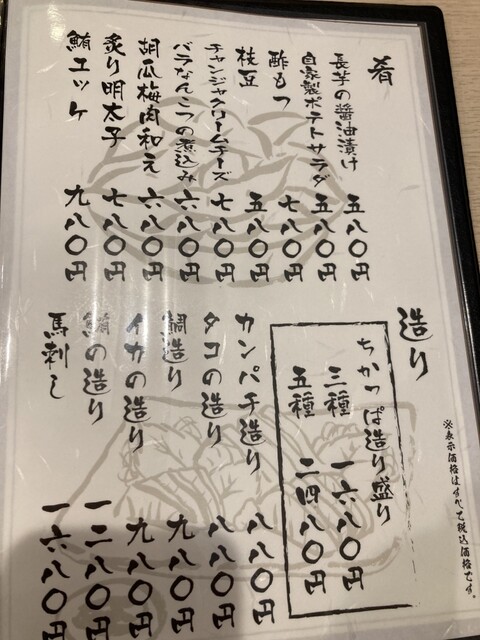 肴
長芋の醤油漬け 五八〇円
自家製ポテトサラダ 五八〇円
酢もつ 七八〇円
枝豆 五八〇円
チャンジャクリームチーズ 七八〇円
バラなんこつの煮込み 六八〇円
胡瓜梅肉和え 六八〇円
炙り明太子 七八〇円
鮪ユッケ 九八〇円
※表示価格はすべて税込価格です。
造り
ちかっぱ造り盛り
三種 一六八〇円
五種 二四八〇円
カンパチ造り 八八〇円
タコの造り 八八〇円
鯛造り 九八〇円
イカの造り 九八〇円
鮪の造り 一二八〇円
馬刺し 一六八〇円